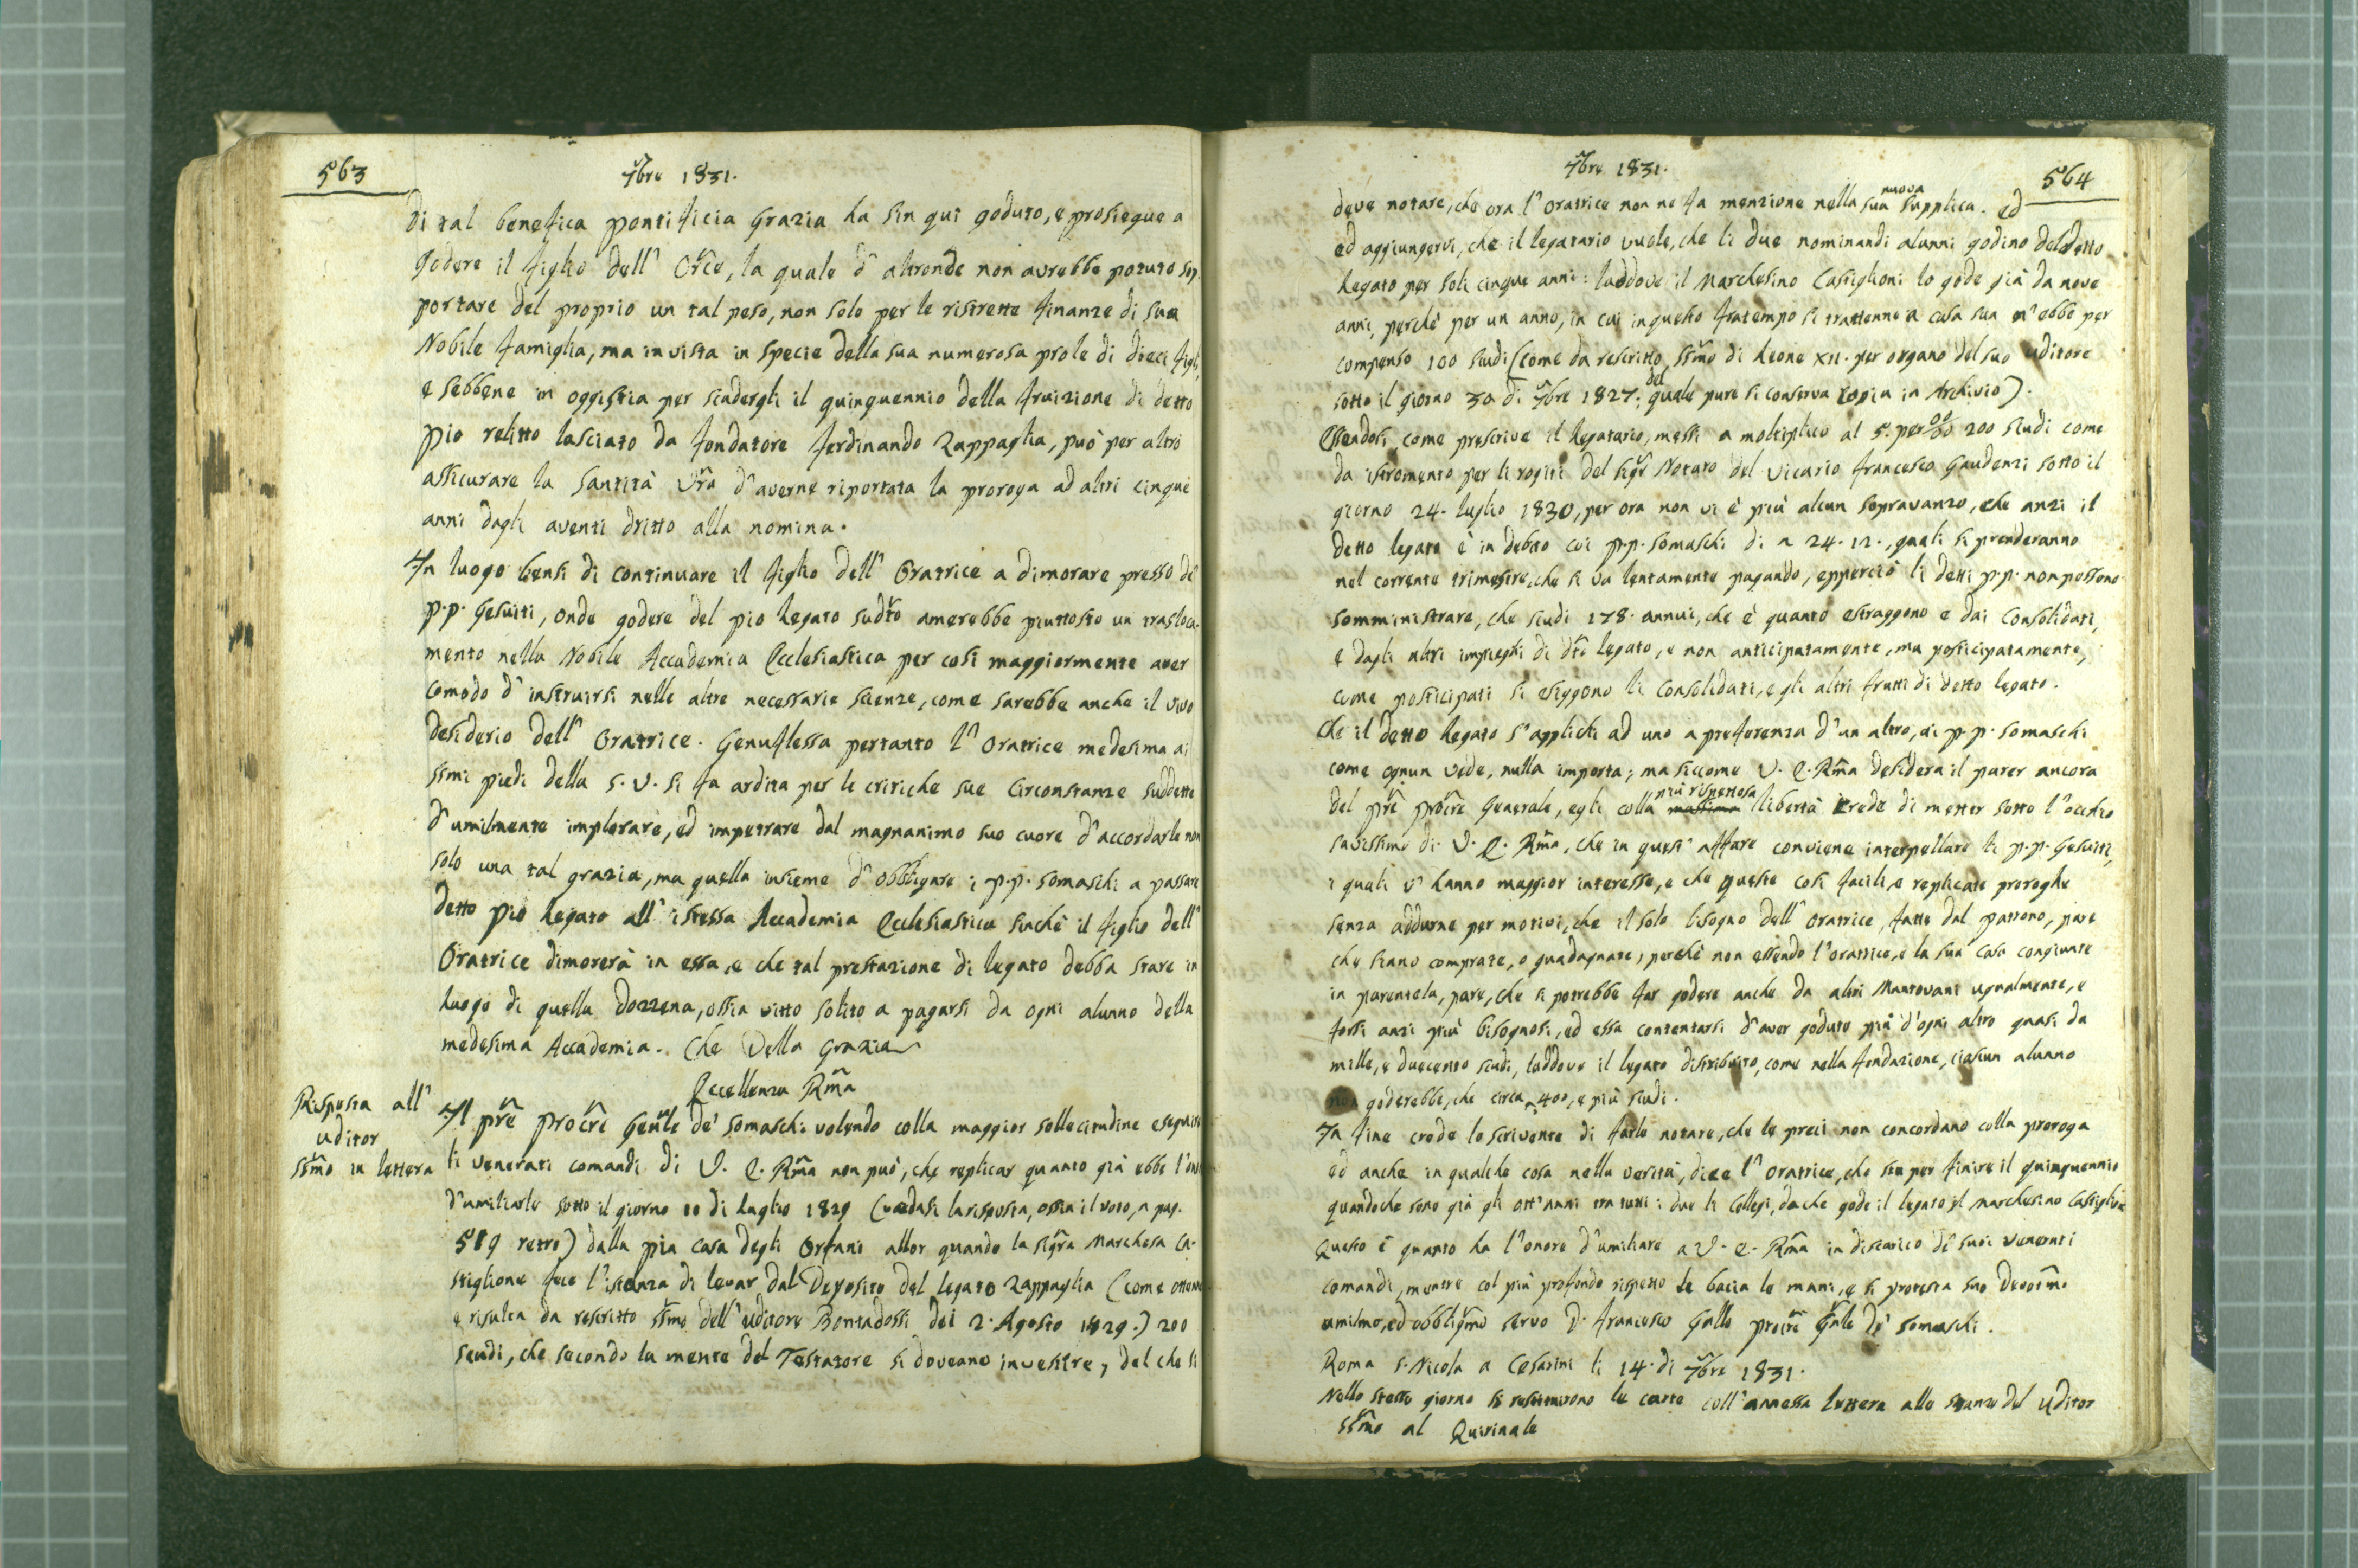 563
7bre 1831.
di tal benefica pontificia Grazia ha sin qui goduto, e prosiegue a
Godere il figlio dell' Orce, la quale d' altronde non avrebbe potuto sop,
portare del proprio un tal peso, non solo per le ristrette finanze di sua
Nobile famiglia, ma in vista in specie della sua numerosa prole di dieci figli,
e sebbene in oggi stia per scadergli il quinquennio della fruizione di detto
Pio relitto lasciato da fondatore ferdinando Zappaglia, può per altro
assicurare la Santità Vra d'averne riportata la proroga ad altri cinque
anni dagli aventi dritto alla nomina.
In luogo bensi di continuare il figlio dell' Oratrice a dimorare presso de'
p.p. Gesuiti, onde godere del pio Legato sudto amerebbe piuttosto un trasloca-
mento nella Nobile Accademia Ecclesiastica per così maggiormente aver
comodo d' instruirsi nelle altre necessarie scienze, come sarebbe anche il vivo
desiderio dell' Oratrice. Genuflessa pertanto l' Oratrice medesima ai
ssmi piedi della S. V. si fa ardita per le critiche sue circonstanze suddette
d'umilmente implorare, ed impetrare dal magnanimo suo cuore d'accordarle non
solo una tal grazia, ma quella insieme d' obbligare i p.p. Somaschi a passare
detto pio Legato all' istessa Accademia Ecclesiastica sinchè il figlio dell'
Oratrice dimorerà in essa, e che tal prestazione di legato debba stare in
luogo di quella dozzena, ossia vitto solito a pagarsi da ogni alunno della
medesima Accademia. Che Della Grazia
Eccellenza Rma
Risposta all'
Uditor
Ssmo in lettera
Il pre Procre Genle de' Somaschi volendo colla maggior sollecitudine eseguire
li venerati comandi di V. E. Rma non può, che replicar quanto già ebbe l'on
d'umiliarle sotto il giorno 10 di Luglio 1829 (vedasi la risposta, ossia il voto, a pag.
519 retro) dalla pia Casa degli Orfani allor quando la Sigra Marchesa Ca-
stiglione fece l'istanza di levar dal Deposito del legato Zappaglia (come ottenne
e risulta da rescritto ssmo dell' uditore Bontadossi dei 2. Agosto 1829.) 200
scudi, che secondo la mente del Testatore si doveano investire, del che si
7bre 1831.
564
deve notare, che ora l' oratrice non ne fa menzione nella sua nuova supplica. Ed
ed aggiungervi, che il legatario vuole, che li due nominandi alunni godino del detto
Legato per soli cinque anni: laddove il Marchesino Castiglioni lo gode già da nove
anni, perchè per un anno, in cui in questo fratempo si trattenne a casa sua n'ebbe per
compenso 100 scudi (come da rescritto ssmo di Leone XII. per organo del suo uditore
sotto il giorno 30 di 7bre 1827; del quale pure si conserva copia in Archivio).
Essendosi, come prescrive il Legatario, messi a moltiplico al 5. per 00/00 200 scudi come
da istromento per li rogiti del Sigr Notaro del Vicario francesco Gaudenzi sotto il
giorno 24. luglio 1830, per ora non vi è più alcun sopravanzo, che anzi il
detto legato è in debito coi p.p. Somaschi di 24. 12., quali si prenderanno
nel corrente trimestre, che si va lentamente pagando, epperciò li detti p.p. non possono
somministrare, che scudi 178. annui, che è quanto estraggono e dai Consolidati,
e dagli altri impieghi di dto legato, e non anticipatamente, ma posticipatamente,
come posticipati si esiggono li Consolidati, e gli altri frutti di detto legato.
Che il detto Legato s'applichi ad uno a preferenza d'un altro, ai p.p. Somaschi
come ognun vede, nulla importa; ma siccome V. E. Rma desidera il parer ancora
del pre procre Generale, egli colla massima più rispettosa libertà crede di metter sotto l'occhio
savissimo di V. E. Rma, che in quest' affare conviene interpellare li p.p. Gesuiti,
i quali v' hanno maggior interesse, e che queste così facili, e replicate proroghe
senza addurne per motivi, che il solo bisogno dell' oratrice, fatte dal pattono, pare
che siano comprate, o guadagnate; perchè non essendo l'oratrice, e la sua casa congiunte
in parentela, pare, che si potrebbe far godere anche da altri Mantovani ugualmente, e
forsi anzi più bisognosi, ed essa contentarsi d'aver goduto più d'ogni altro quasi da
mille, e duecento scudi, laddove il legato distribuito, come nella fondazione, ciasiun alunno
non goderebbe, che circa 400, e più scudi.
In fine crede lo scrivente di farle notare, che le preci non concordano colla proroga
ed anche in qualche cosa nella verità, dice l' oratrice, che sta per finire il quinquennio
quandoche sono già gli ott'anni tra tutti i due li Collegi, da che gode il legato il Marchesino Castiglione
Questo è quanto ha l'onore d'umiliare a V. E. Rma in discarico de' suoi venerati
comandi, mentre col più profondo rispetto le bacia le mani, e si protesta suo Devotmo
umilmo, ed obbligmo servo D. francesco Gallo procre Gnle de' Somaschi.
Roma S. Nicola a Cesarini li 14. di 7bre 1831.
Nello stesso giorno si restituirono le carte coll'annessa lettera alle stanze del Uditor
Ssmo al Quirinale